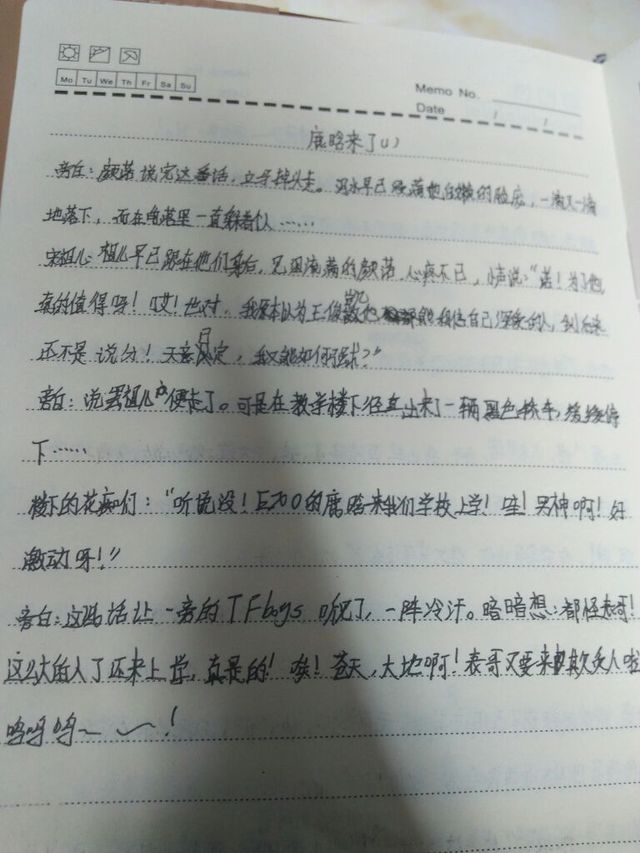 Mo Tu We Th Fr Sa Su
Memo No.
Date / /
鹿晗来了(1)
旁白:颜诺说完这番话,立马掉头走。泪水早已,一滴又一滴
地落下,而在角落里一直躲着的人……
宋祖儿:祖儿早已跟在他们身后,见泪流满面的颜诺,心疼不已,小声说:“诺!为了他
真的值得吗!哎!也对,我原本以为王俊凯他能相信自己深爱的人,到后来
还不是说分!天意已定,我又能如何强求?”
旁白:说罢祖儿也便走了。可是在教学楼下径直出来了一辆黑色轿车,缓缓停
下……
楼下的花痴们:“听说没!EXO的鹿晗来我们学校上学!哇!男神啊!好
激动呀!”
旁白:这句话让一旁的TFboys听了,一阵冷汗。暗暗想:都怪表哥!
这么大的人了还来上学,真是的!唉!苍天,大地啊!表哥又要来欺负人啦
呜呜呜~ ~!